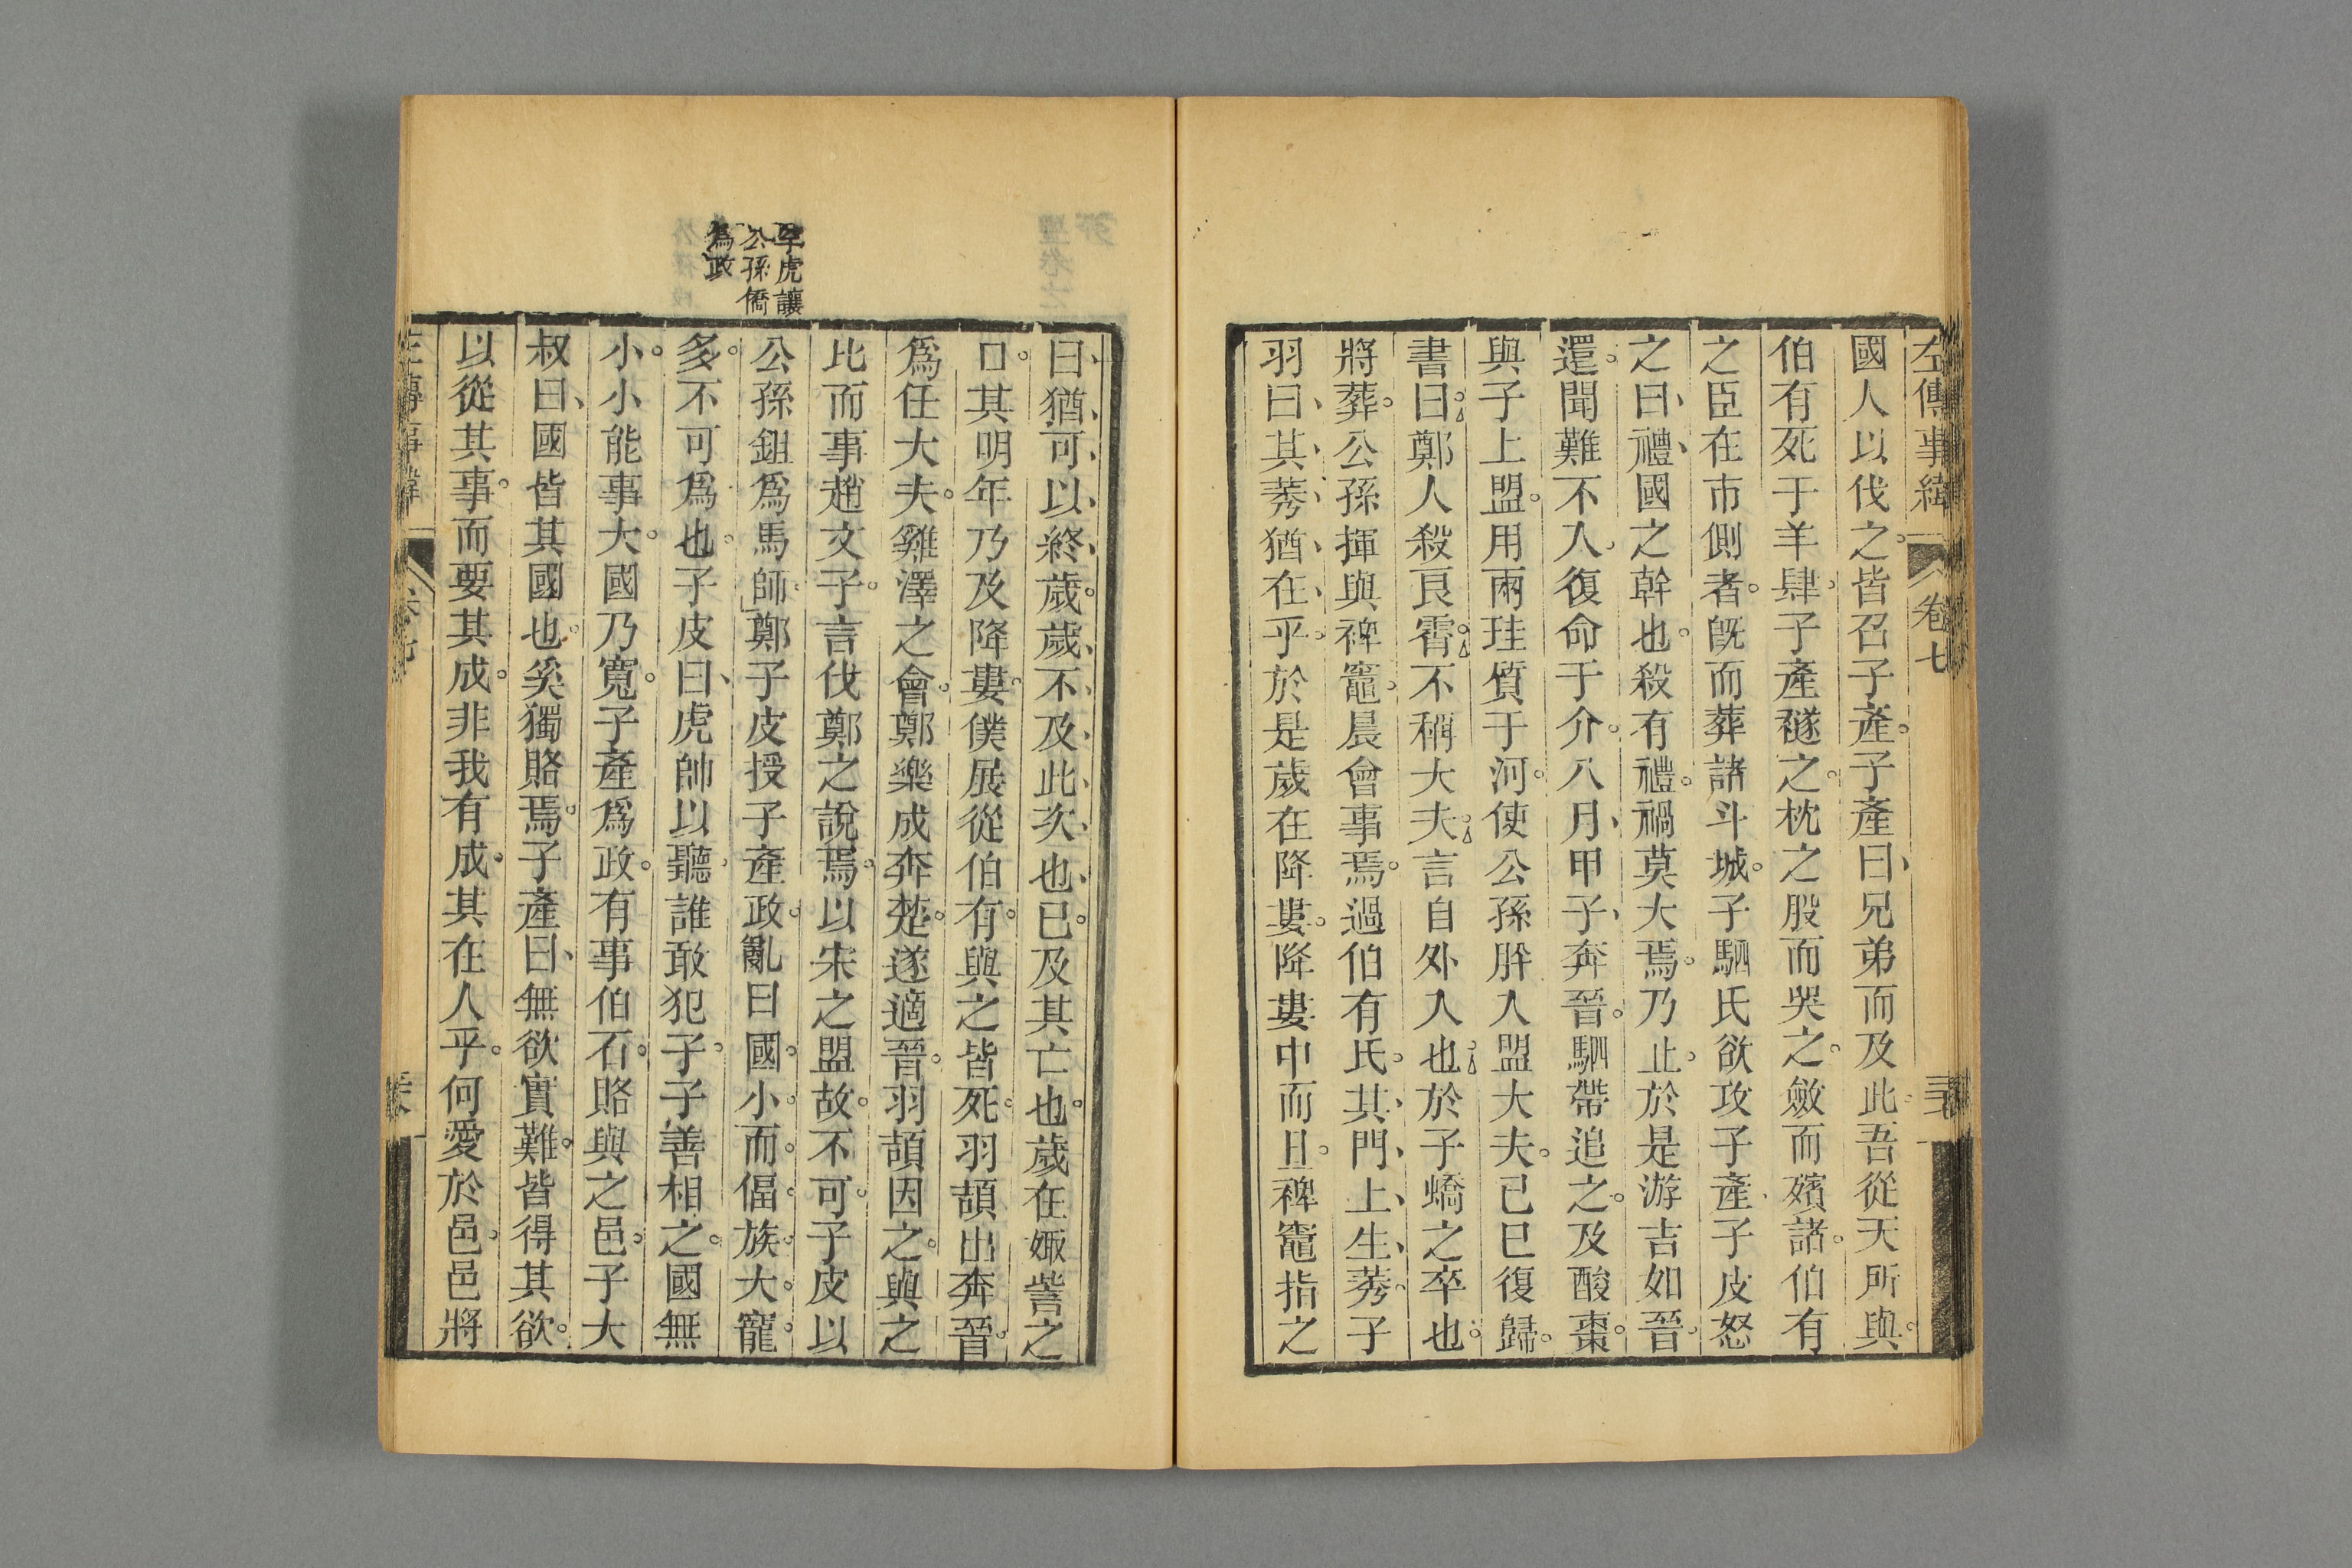 左傳事緯
卷七
國人以伐之皆召子產子產曰兄弟而及此吾從天所與
伯有死于羊肆子產襚之枕之股而哭之斂而殯諸伯有
之臣在市側者旣而葬諸斗城子駟氏欲攻子產子皮怒
之曰禮國之幹也殺有禮禍莫大焉乃止於是游吉如晉
還聞難不入復命于介八月甲子奔晉駟帶追之及酸棗
與子上盟用兩珪質于河使公孫肸入盟大夫己巳復歸
書曰鄭人殺良霄不稱大夫言自外入也於子蟜之卒也
將葬公孫揮與裨竈晨會事焉過伯有氏其門上生莠子
羽曰其莠猶在乎於是歲在降婁降婁中而旦裨竈指之
曰猶可以終歲歲不及此次也已及其亡也歲在娵訾之
口其明年乃及降婁僕展從伯有與之皆死羽頡出奔晉
爲任大夫雞澤之會鄭樂成奔楚遂適晉羽頡因之與之
比而事趙文子言伐鄭之說焉以宋之盟故不可子皮以
公孫鉏爲馬師鄭子皮授子產政亂曰國小而偪族大寵
多不可爲也子皮曰虎帥以聽誰敢犯子子善相之國無
小小能事大國乃寬子產爲政有事伯石賂與之邑子大
叔曰國皆其國也奚獨賂焉子產曰無欲實難皆得其欲
以從其事而要其成非我有成其在人乎何愛於邑邑將
罕虎讓
公孫僑
爲政
左傳事緯